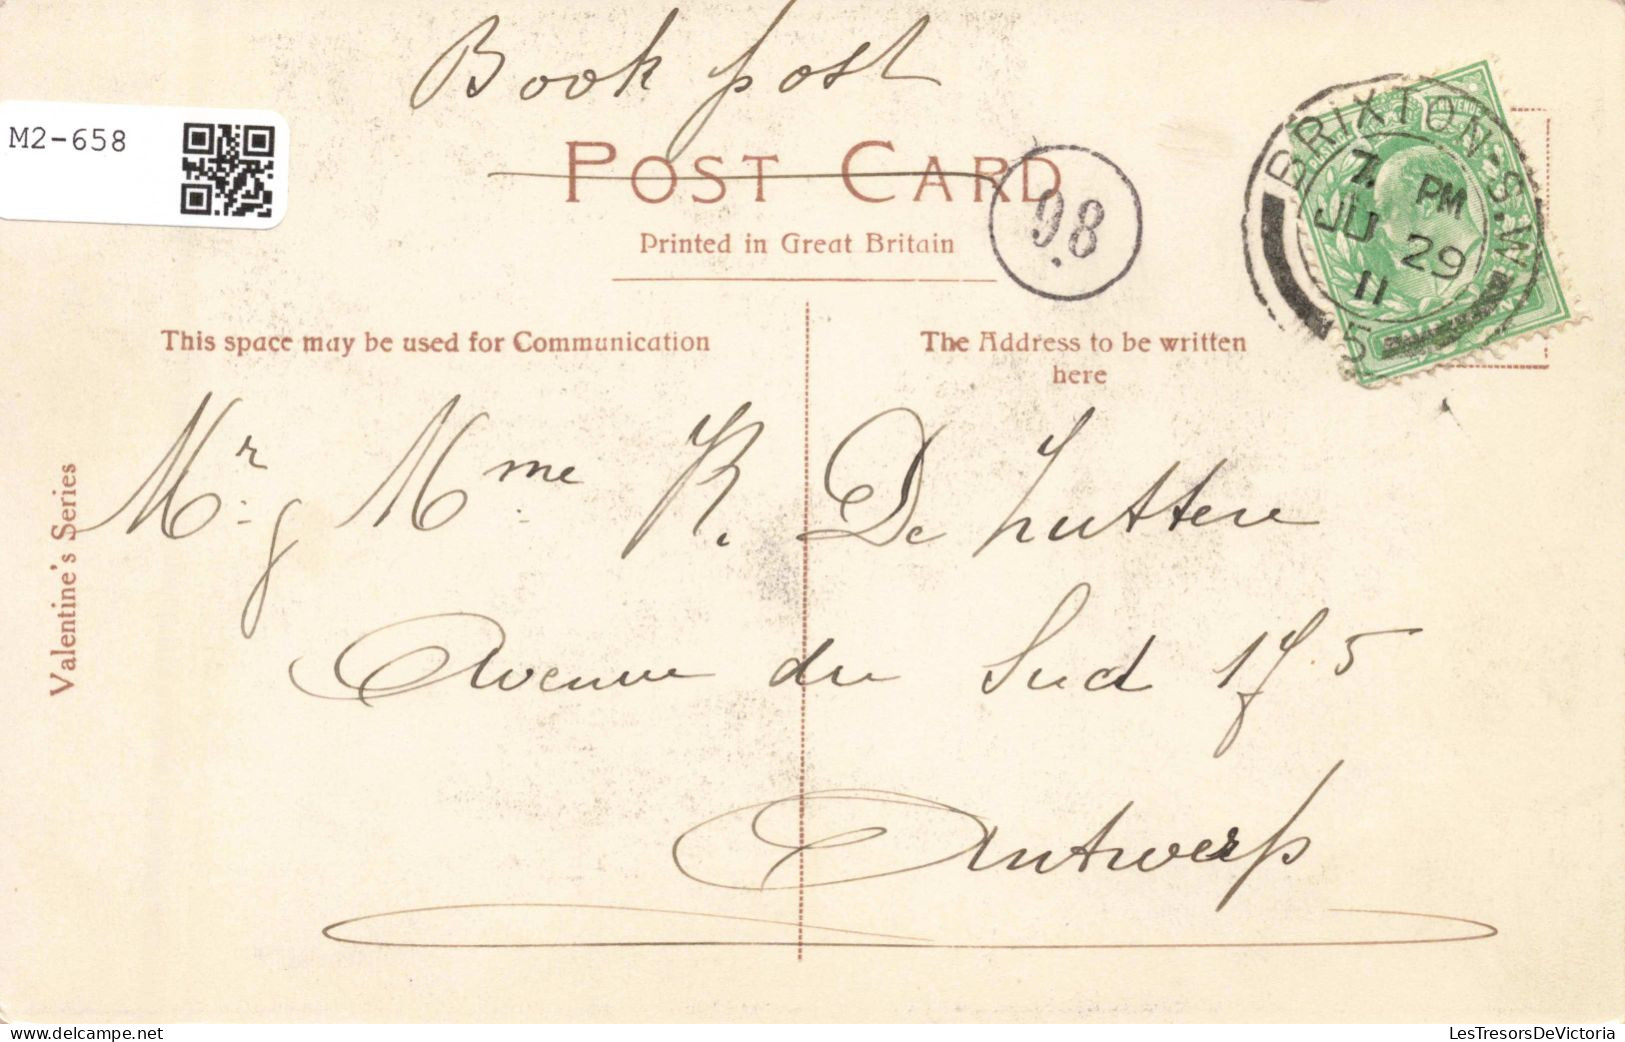 Book post
M2-658
POST CARD
Printed in Great Britain
98
BRIXTON-S.W.
7. PM
JU 29
11
5
REVENUE
This space may be used for Communication
The Address to be written
here
Valentine's Series
Mr. & Mme K. De Luttere
Avenue du Sud 175
Antwerp
LesTresorsDeVictoria